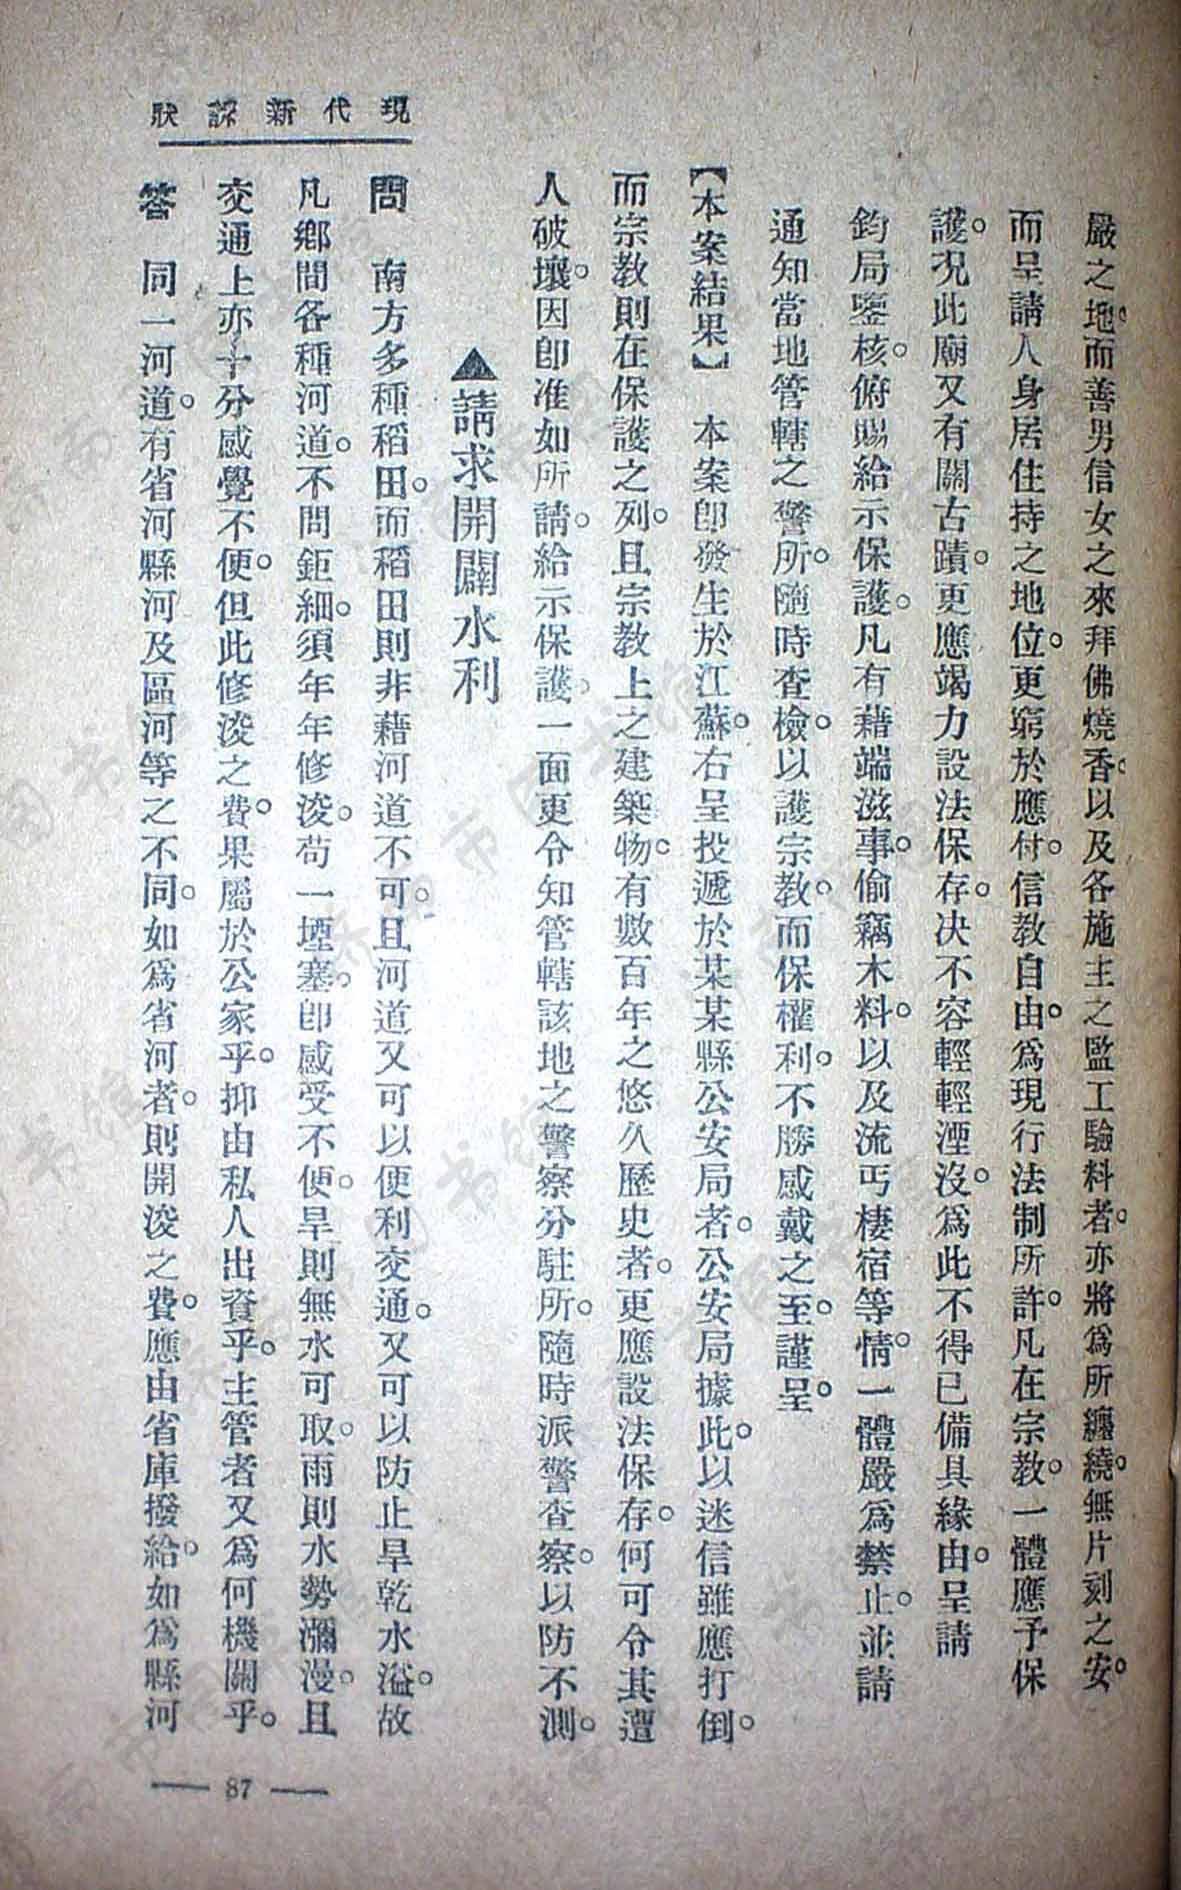 現代新訴狀
嚴之地。而善男信女之來拜佛燒香。以及各施主之監工驗料者。亦將爲所纏繞。無片刻之安。
而呈請人身居住持之地位。更窮於應付。信教自由。爲現行法制所許。凡在宗教。一體應予保
護。况此廟又有關古蹟。更應竭力設法保存。决不容輕輕湮沒。爲此不得已備具緣由。呈請
鈞局鑒核。俯賜給示保護。凡有藉端滋事。偷竊木料。以及流丐棲宿等情。一體嚴爲禁止。並請
通知當地管轄之警所。隨時查檢。以護宗教。而保權利。不勝感戴之至。謹呈。
【本案結果】 本案卽發生於江蘇。右呈投遞於某某縣公安局者。公安局據此。以迷信雖應打倒。
而宗教則在保護之列。且宗教上之建築物。有數百年之悠久歷史者。更應設法保存。何可令其遭
人破壞。因卽准如所請。給示保護。一面更令知管轄該地之警察分駐所。隨時派警查察。以防不測。
▲請求開闢水利
問 南方多種稻田。而稻田則非藉河道不可。且河道又可以便利交通。又可以防止旱乾水溢。故
凡鄉間各種河道。不問鉅細。須年年修浚。苟一堙塞。卽感受不便。旱則無水可取。雨則水勢瀰漫。且
交通上亦十分感覺不便。但此修浚之費。果屬於公家乎。抑由私人出資乎。主管者又爲何機關乎。
答 同一河道。有省河縣河及區河等之不同。如爲省河者。則開浚之費。應由省庫撥給。如爲縣河
— 87 —